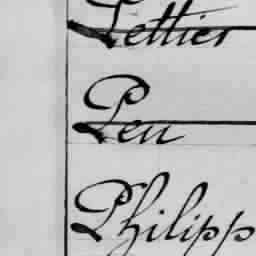 Pettier
Peu
Philipp